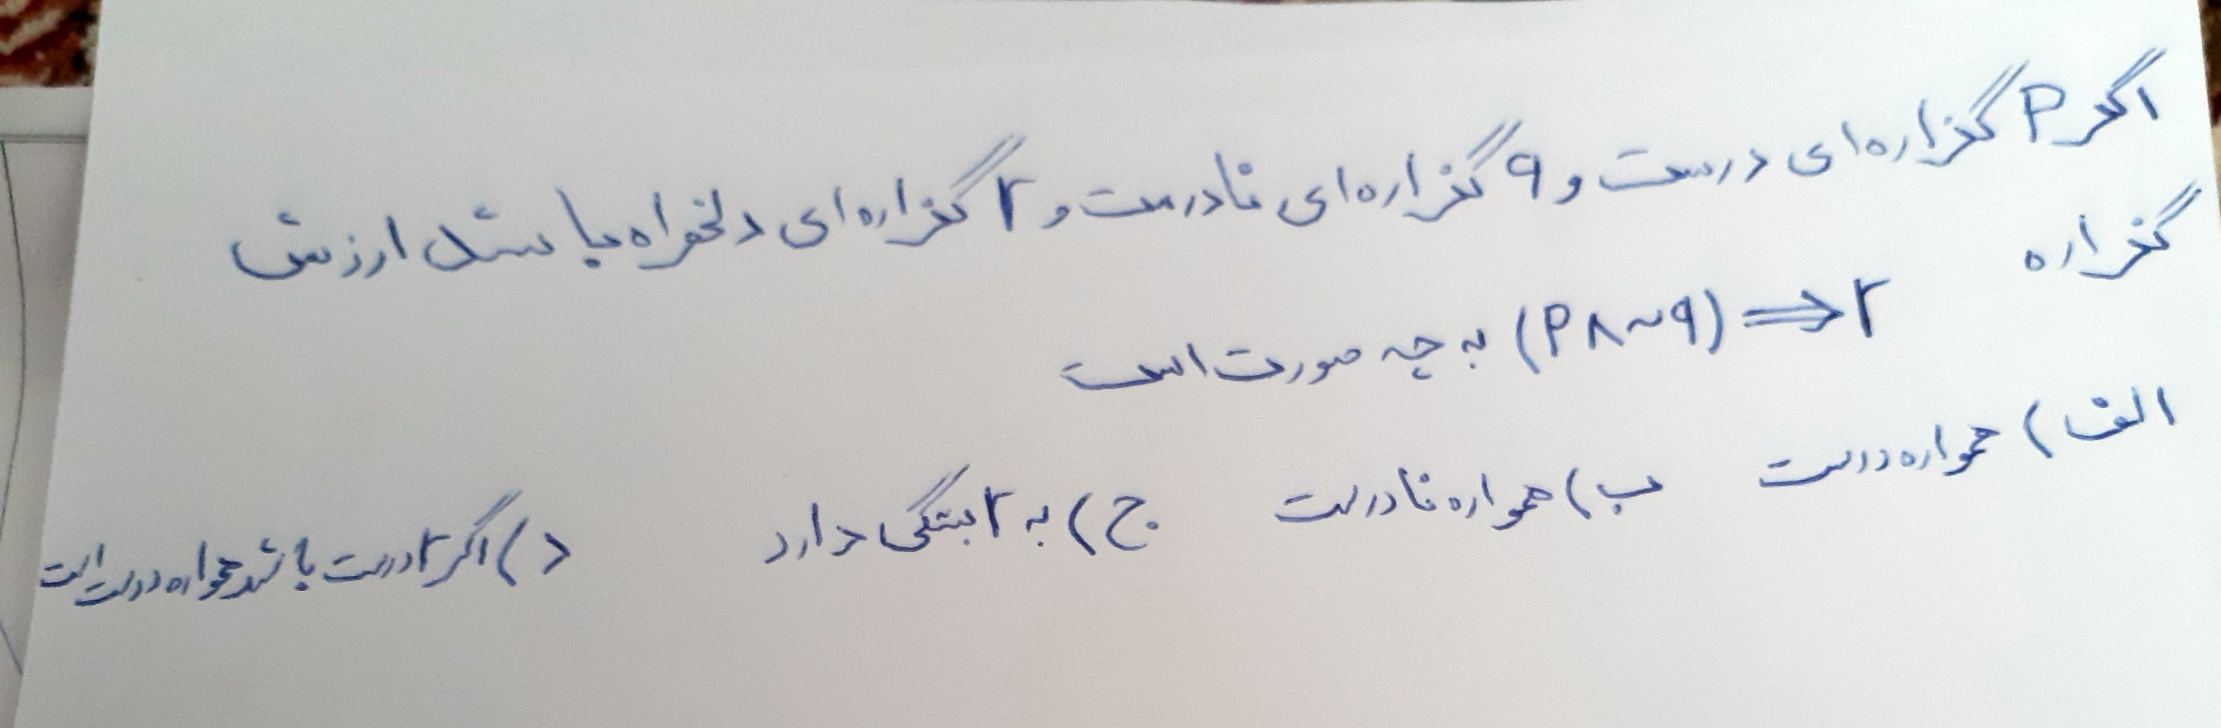 اگر P گزاره‌ای درست و q گزاره‌ای نادرست و r گزاره‌ای دلخواه باشد ارزش
گزاره
(P ∧ ~q) ⟹ r به چه صورت است
الف) همواره درست ب) همواره نادرست ج) به r بستگی دارد د) اگر r درست باشد همواره درست است